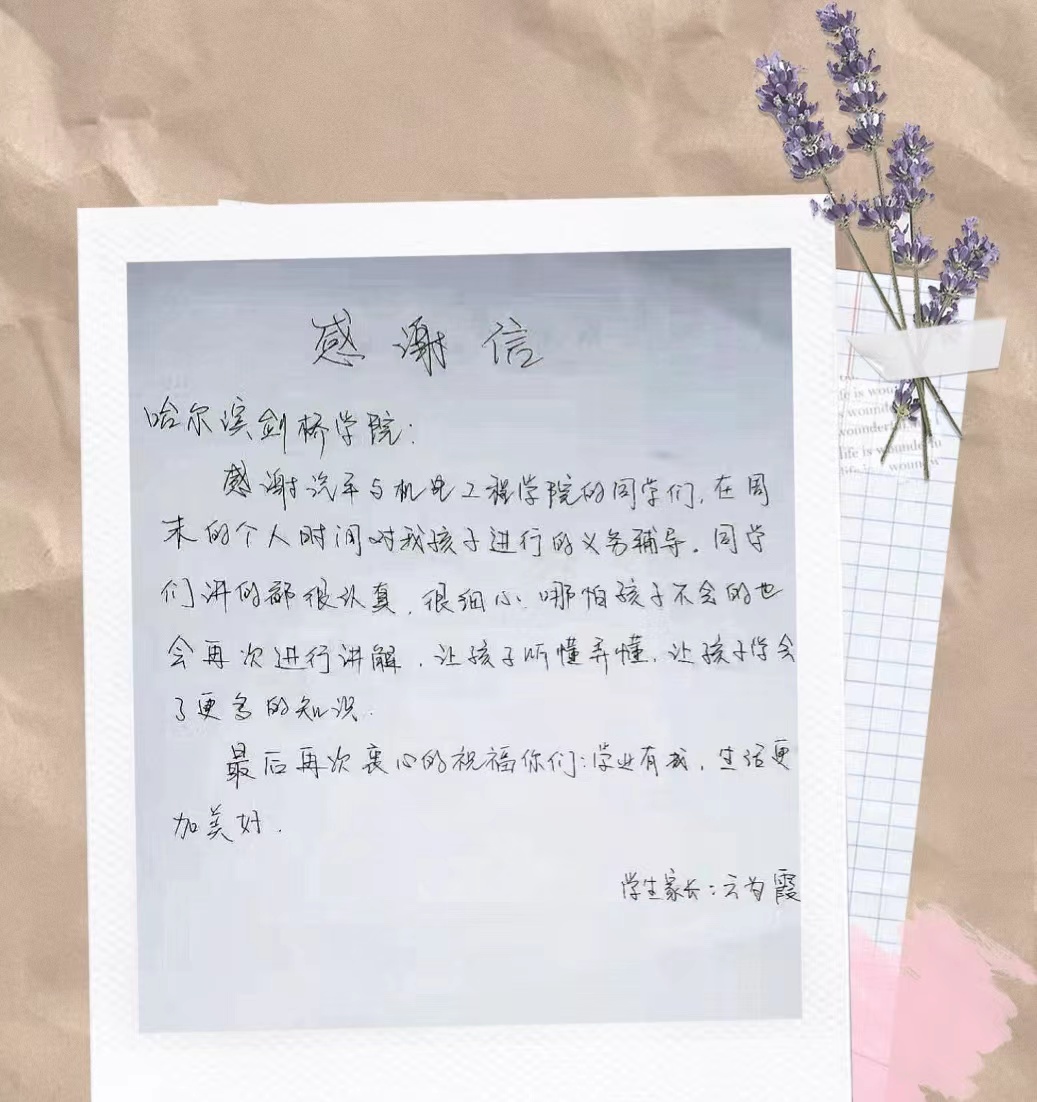 感谢信
哈尔滨剑桥学院：
感谢汽车与机电工程学院的同学们，在周
末的个人时间对我孩子进行的义务辅导。同学
们讲的都很认真，很细心，哪怕孩子不会的也
会再次进行讲解，让孩子听懂弄懂，让孩子学会
了更多的知识.
最后再次衷心的祝福你们：学业有成，生活更
加美好.
学生家长：云为霞
life is wou
wounde
wonderf
life is wounde fu